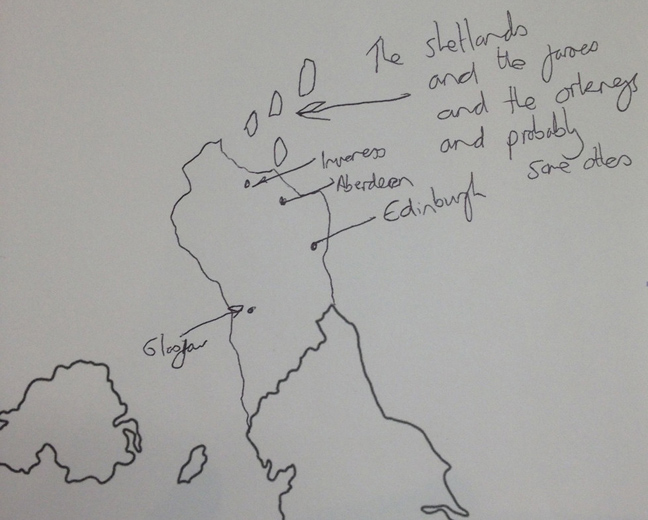 The shetlands
and the faroes
and the orkneys
and probably
some others
Inverness
Aberdeen
Edinburgh
Glasgow